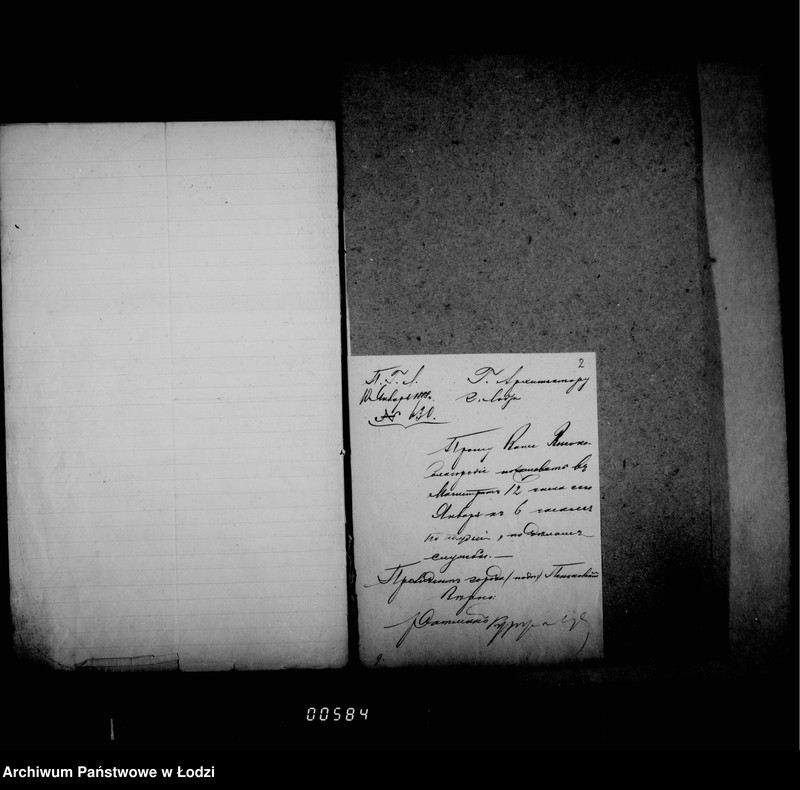 2
П. Г. Л.
10 Января
№ 130.
Г. Архитектору
г. Лодзи
Прошу Ваше Высоко-
благородіе пожаловать въ
Магистратъ 12 числа сего
Января къ 6 часамъ
по полудни, по дѣламъ
службы.—
Президентъ города (подп.) Пеньковскій
Вѣрно:
00584
Archiwum Państwowe w Łodzi